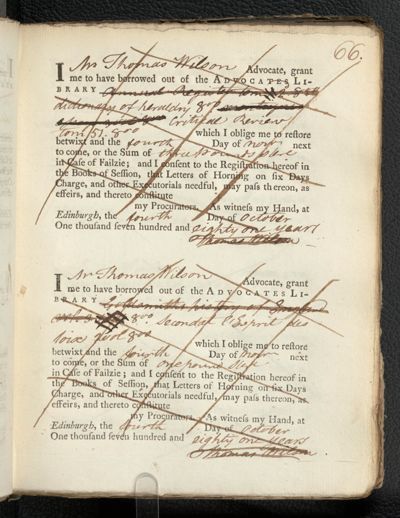 66.
I Mr Thomas Wilson Advocate, grant
me to have borrowed out of the ADVOCATES LI-
BRARY Annual Register tom
dictionary of heraldry 8vo
Critical Review
tom 51. 8vo which I oblige me to restore
betwixt and the fourth Day of novr next
to come, or the Sum of three pounds
in Case of Failzie; and I consent to the Registration hereof in
the Books of Session, that Letters of Horning on six Days
Charge, and other Executorials needful, may pass thereon, as
effeirs, and thereto constitute
my Procurators. As witness my Hand, at
Edinburgh, the fourth Day of October
One thousand seven hundred and eighty one years
Thomas Wilson
I Mr Thomas Wilson Advocate, grant
me to have borrowed out of the ADVOCATES LI-
BRARY Goldsmiths history of England
8vo Secondat L'Esprit des
loix 8vo which I oblige me to restore
betwixt and the fourth Day of novr next
to come, or the Sum of one pound
in Case of Failzie; and I consent to the Registration hereof in
the Books of Session, that Letters of Horning on six Days
Charge, and other Executorials needful, may pass thereon, as
effeirs, and thereto constitute
my Procurators. As witness my Hand, at
Edinburgh, the fourth Day of October
One thousand seven hundred and eighty one years
Thomas Wilson